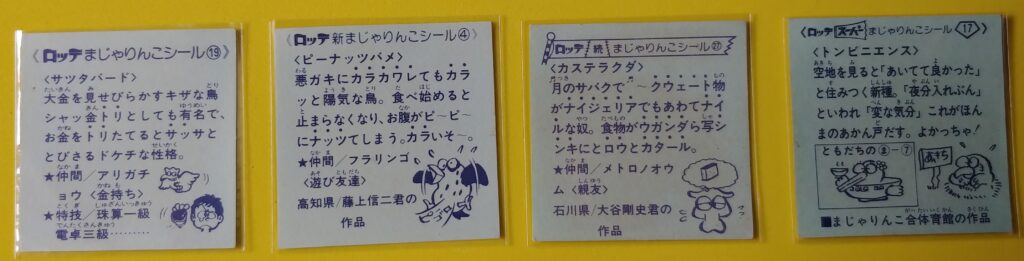 《ロッテまじゃりんこシール⑲》
〈サツタバード〉
大金を見せびらかすキザな鳥
シャッ金トリとしても有名で、
お金をトリたてるとサッサと
とびさるドケチな性格。
★仲間/アリガチ
ョウ〈金持ち〉
★特技/珠算一級
電卓三級………
《ロッテ新まじゃりんこシール④》
〈ピーナッツバメ〉
悪ガキにカラカワレてもカラ
ッと陽気な鳥。食べ始めると
止まらなくなり、お腹がピ−ピ−
にナッツてしまう。カライそ〜。
★仲間/フラリンゴ
〈遊び友達〉
高知県/藤上信二君の
作品
ロッテ 続 まじゃりんこシール㉗
〈カステラクダ〉
月のサバクで〜クウェート物
がナイジェリアでもあわてナイ
ルな奴。食物がウガンダら写シ
ンキにとロウとカタール。
★仲間/メトロノオウ
ム〈親友〉
石川県/大谷剛史君の
作品
《ロッテ スーパー まじゃりんこシール⑰》
〈トンビニエンス〉
空地を見ると「あいてて良かった」
と住みつく新種。「夜分入れぶん」
といわれ「変な気分」これがほん
まのあかん戸だす。よかっちゃ!
ともだちの ま−⑦
あきち
■まじゃりんこ合体育館の作品